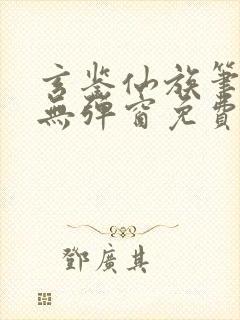 玄鉴仙族笔
無彈窗免費
鄧廣其